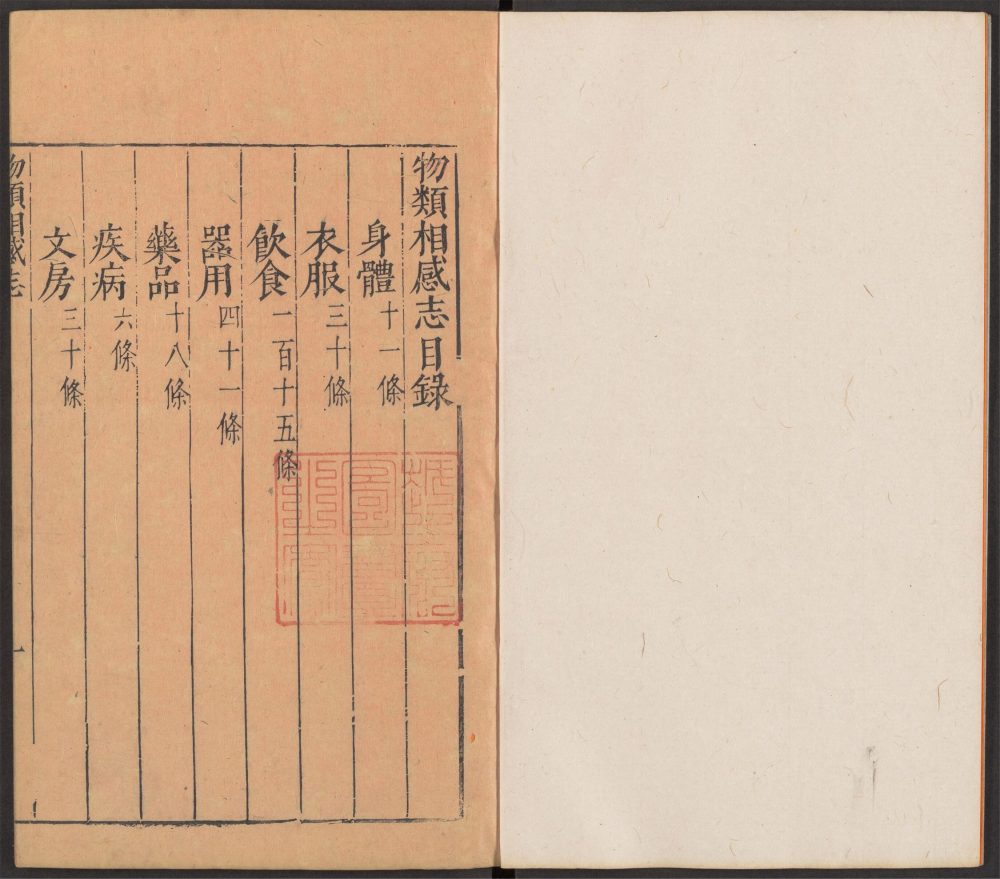 物類相感志目錄
身體十一條
衣服三十條
飲食一百十五條
器用四十一條
藥品十八條
疾病六條
文房三十條
物類相感志
一